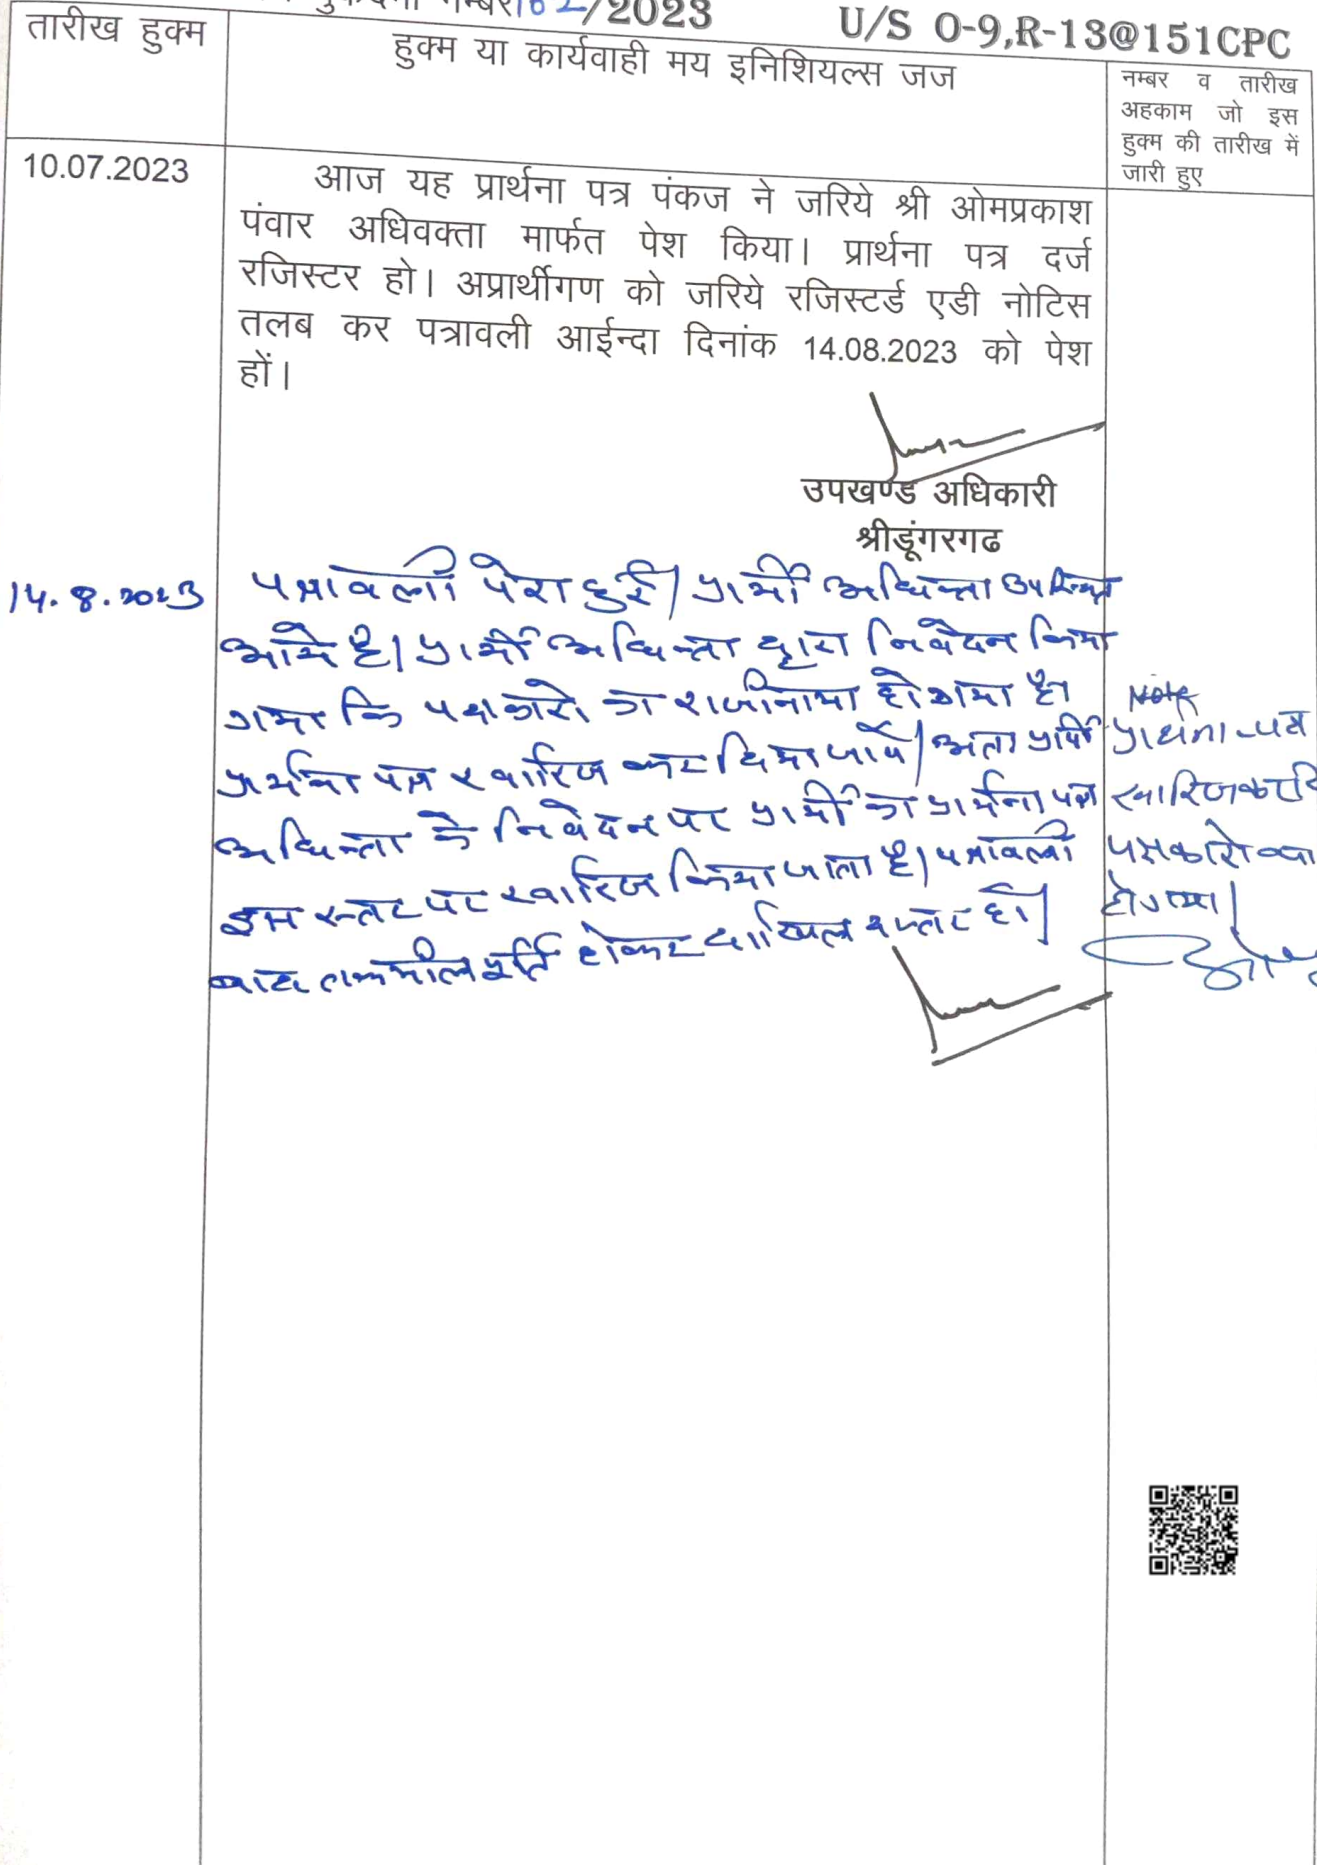 मुकदमा नम्बर 162/2023 U/S O-9,R-13@151CPC
तारीख हुक्म
हुक्म या कार्यवाही मय इनिशियल्स जज
नम्बर व तारीख
अहकाम जो इस
हुक्म की तारीख में
जारी हुए
10.07.2023
आज यह प्रार्थना पत्र पंकज ने जरिये श्री ओमप्रकाश
पंवार अधिवक्ता मार्फत पेश किया। प्रार्थना पत्र दर्ज
रजिस्टर हो। अप्रार्थीगण को जरिये रजिस्टर्ड एडी नोटिस
तलब कर पत्रावली आईन्दा दिनांक 14.08.2023 को पेश
हों।
उपखण्ड अधिकारी
श्रीडूंगरगढ
14.8.2023
पत्रावली पेश हुई। प्रार्थी अधिवक्ता उपस्थित
आये है। प्रार्थी अधिवक्ता द्वारा निवेदन किया
गया कि पक्षकारो का राजीनामा हो गया है।
प्रार्थना पत्र खारिज कर दिया जावे। अतः प्रार्थी
अधिवक्ता के निवेदन पर प्रार्थी का प्रार्थना पत्र
इस स्तर पर खारिज किया जाता है। पत्रावली
बाद तकमील पूर्ति होकर दाखिल दफ्तर हो।
Note
प्रार्थना-पत्र
खारिज
पक्षकारो
होगया।